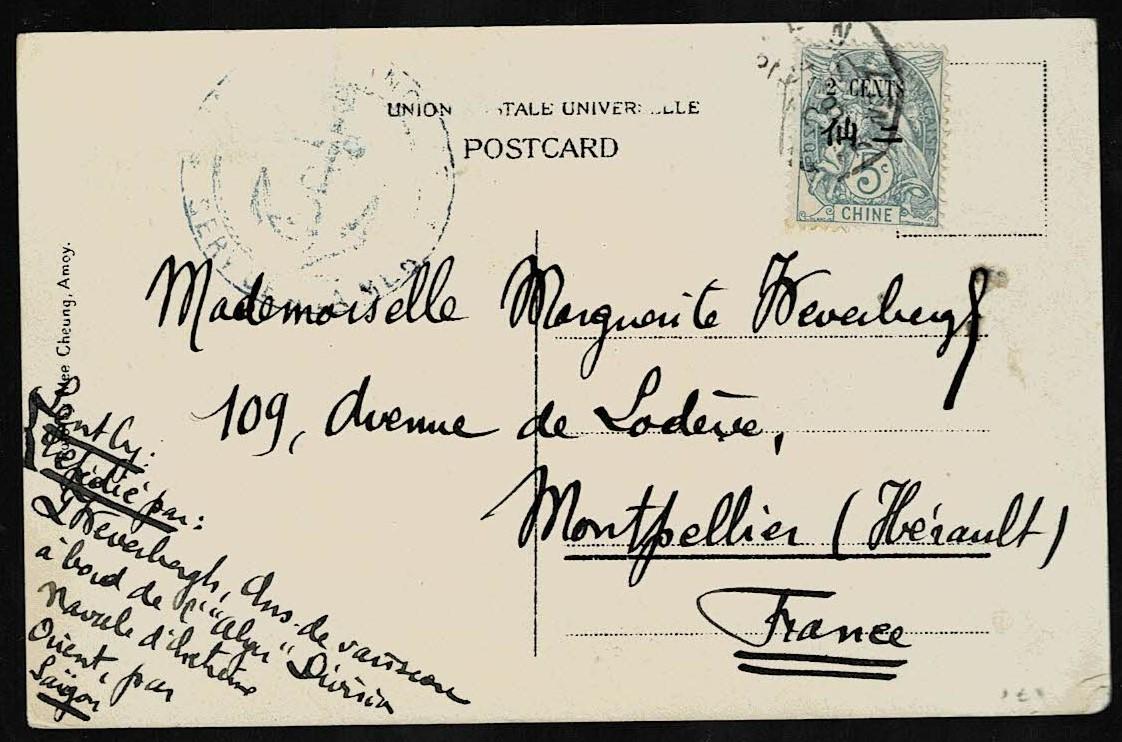 UNION STALE UNIVERSELLE
POSTCARD
2 CENTS
仙二
5c
CHINE
Mee Cheung, Amoy.
Mademoiselle Marguerite Weverbergh
109, Avenue de Lodève,
Montpellier (Hérault)
France
Sent by:
Dédié par:
Weverbergh,
à bord de l' "Alger" Division
Navale d'Extrême
Orient, par
Saïgon